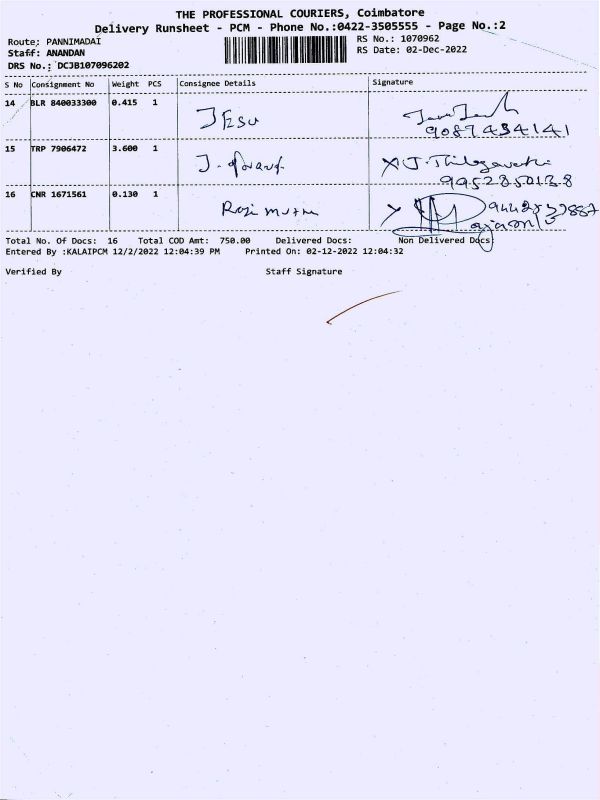 THE PROFESSIONAL COURIERS, Coimbatore
Delivery Runsheet - PCM - Phone No.:0422-3505555 - Page No.:2
Route: PANNIMADAI RS No.: 1070962
Staff: ANANDAN RS Date: 02-Dec-2022
DRS No.: DCJB107096202
S No Consignment No Weight PCS Consignee Details Signature
14 BLR 840033300 0.415 1 JESU
9087434141
15 TRP 7906472 3.600 1 J. X J. Thilagavathi
9952850138
16 CNR 1671561 0.130 1 Raji muthu
Total No. Of Docs: 16 Total COD Amt: 750.00 Delivered Docs: Non Delivered Docs:
Entered By :KALAIPCM 12/2/2022 12:04:39 PM Printed On: 02-12-2022 12:04:32
Verified By Staff Signature